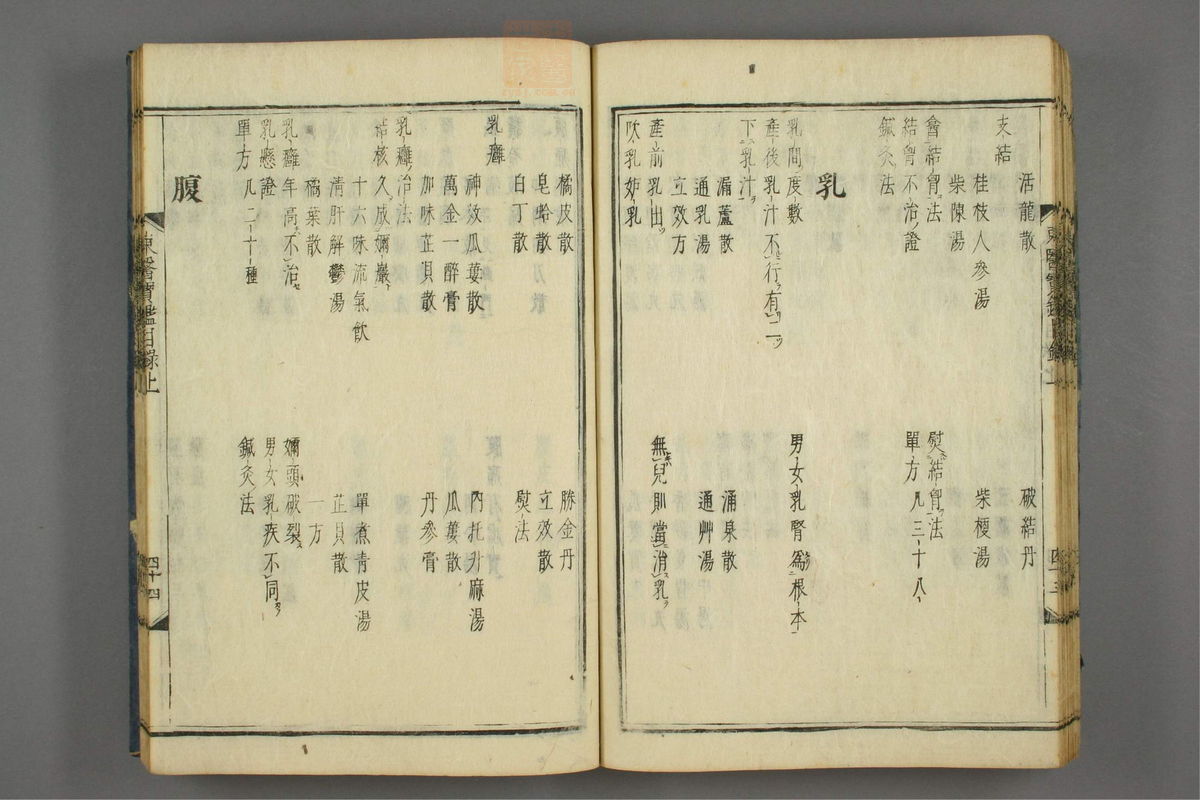 活龍散
破結丹
支結
桂枝人參湯
柴梗湯
柴陳湯
會結胷法
熨結胷法
結胷不治證
單方凡三十八
鍼灸法
乳
乳間度數
男女乳腎爲根本
產後乳汁不行有二
下乳汁
漏蘆散
涌泉散
通乳湯
通艸湯
立效方
產前乳出
無兒則當消乳
吹乳妬乳
東醫寶鑑目錄上
四十三
橘皮散
勝金丹
皂蛤散
立效散
白丁散
熨法
乳癰
神效瓜蔞散
內托升麻湯
萬金一醉膏
瓜蔞散
加味芷貝散
丹參膏
乳癰治法
結核久成嬭巖
十六味流氣飲
單煮青皮湯
清肝解鬱湯
芷貝散
橘葉散
一方
乳癰年高不治
嬭頭破裂
乳懸證
男女乳疾不同
單方凡二十十種
鍼灸法
腹
東醫寶鑑目錄上
四十四